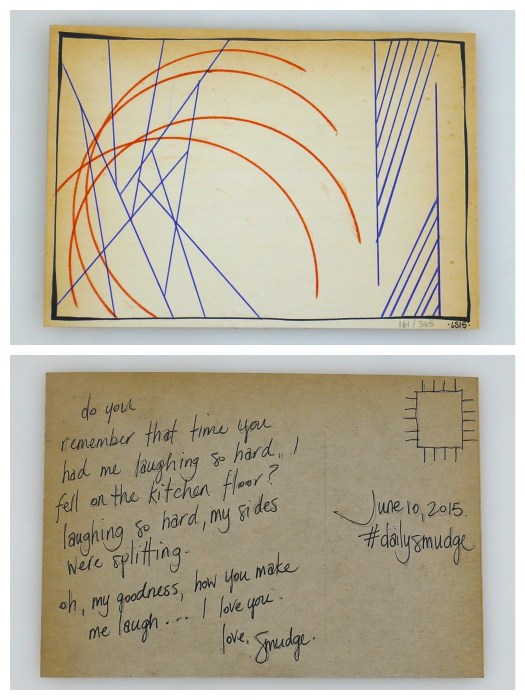 161/365
do you
remember that time you
had me laughing so hard, I
fell on the kitchen floor?
laughing so hard, my sides
were splitting.
oh, my goodness, how you make
me laugh... I love you.
love, smudge.
June 10, 2015.
#dailysmudge